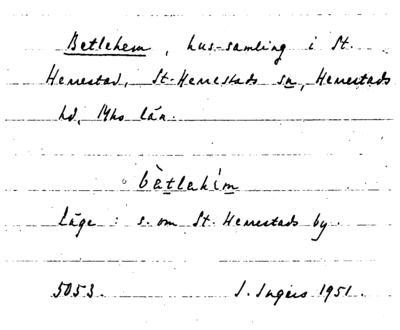 Betlehem, hus-samling i St.
Herrestad, St. Herrestads sn, Herrestads
hd, Mhs län.
bètlehím
Läge: s. om St. Herrestads by.
5053. I. Ingers 1951.